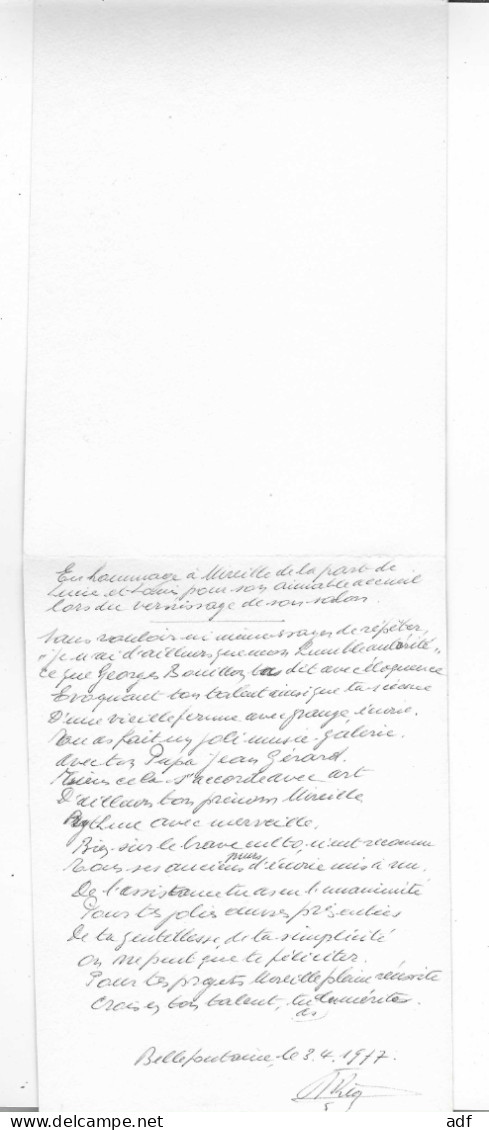 En hommage à Mireille de la part de
Lucie et Louis pour son aimable accueil
lors du vernissage de son salon.
Sans vouloir ni
"Je n'ai d'ailleurs que mon humble autorité"
ce que Georges Bouillon t'as dit avec éloquence
Evoquant ton talent ainsi que la science
D'une vieille ferme avec grange, écurie.
Tu as fait un joli musée-galerie.
avec ton Papa Jean Gérard.
cela s'accorde avec art
D'ailleurs ton prénom Mireille
Rythme avec merveille.
Bien sûr le brave n'eut reconnu
Tous ses anciens murs d'écurie mis à nu.
De l'assistance tu as eu l'unanimité
Pour tes jolies œuvres présentées
De ta gentillesse, de ta simplicité
on ne peut que te féliciter.
Pour tes projets Mireille pleine réussite
Crois en ton talent, tu le mérites.
Bellefontaine, le 3.4.1977.
delcampe.net
adf